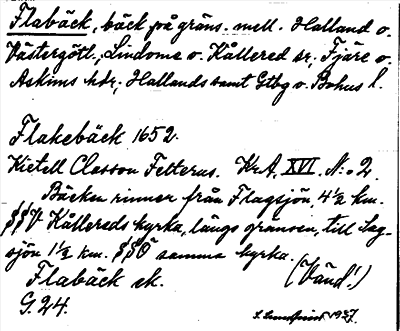 Flabäck, bäck på gräns. mell. Halland o.
Västergötl., Lindome o. Kållered sr, Fjäre o.
Askims hdr, Hallands samt Gtbg o. Bohus l.
Flakebäck 1652.
Kietell Classon Felterus. Kr.A. XVI. N:o 2.
Bäcken rinner från Flagsjön, 4 1/2 km.
Kållereds kyrka, längs gränsen, till Lag-
sjön 1 1/2 km. samma kyrka.
Flabäck ek. (Vänd!)
G. 24.
1927.